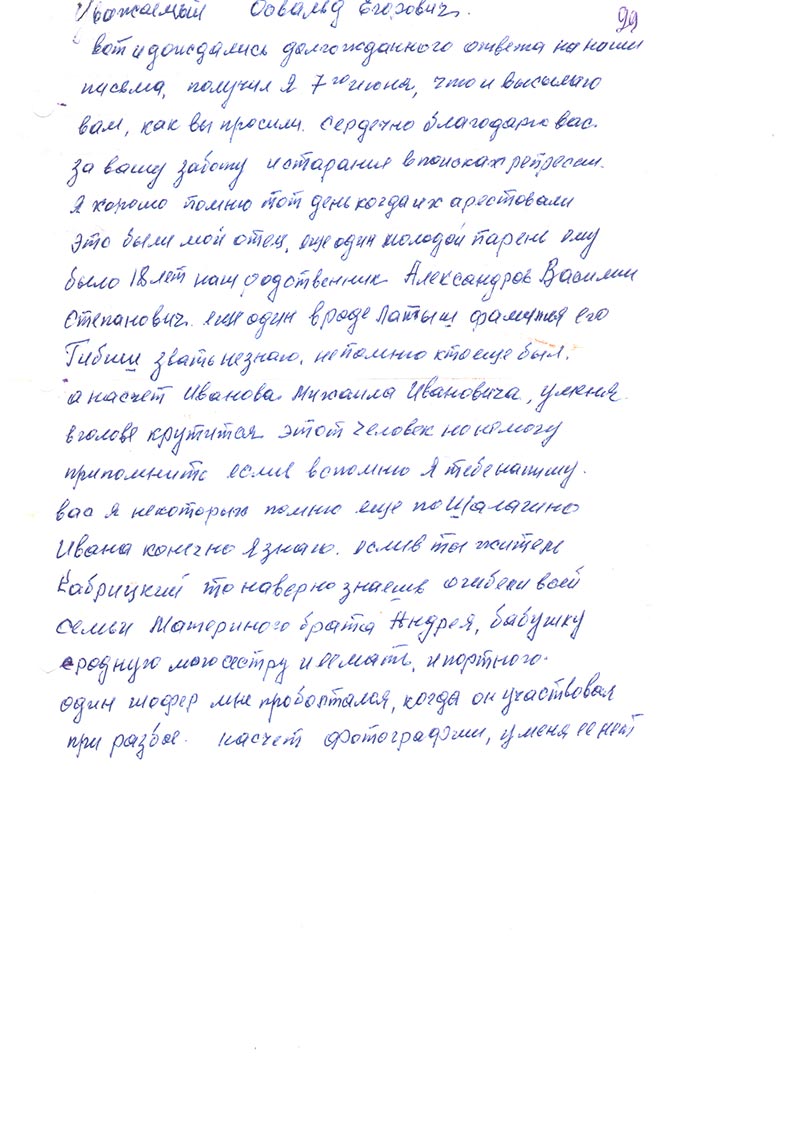 Уважаемый Освальд Егорович.
99
вот и дождались долгожданного ответа на наши
письма, получил я 7го июня, что и высылаю
вам, как вы просили. Сердечно благодарю вас.
за вашу заботу и старания в поисках репрессии.
Я хорошо помню тот день когда их арестовали
это были мой отец, еще один молодой парень ему
было 18 лет наш родственник Александров Василий
Степанович. еще один вроде Латыш фамилия его
Гибиш звать незнаю, непомню кто еще был.
а насчет Иванова Михаила Ивановича, у меня
в голове крутится этот человек но не могу
припомнить если вспомню я тебе напишу.
вас я некоторых помню еще по Шалагино
Ивана конечно я знаю. если ты житель
Кабрицкий то наверно знаешь о гибели всей
семьи Материного брата Андрея, бабушку
родную мою сестру и ее мать, и портного.
один шофер мне проболтался, когда он участвовал
при разбое. насчет фотографии, у меня ее нет